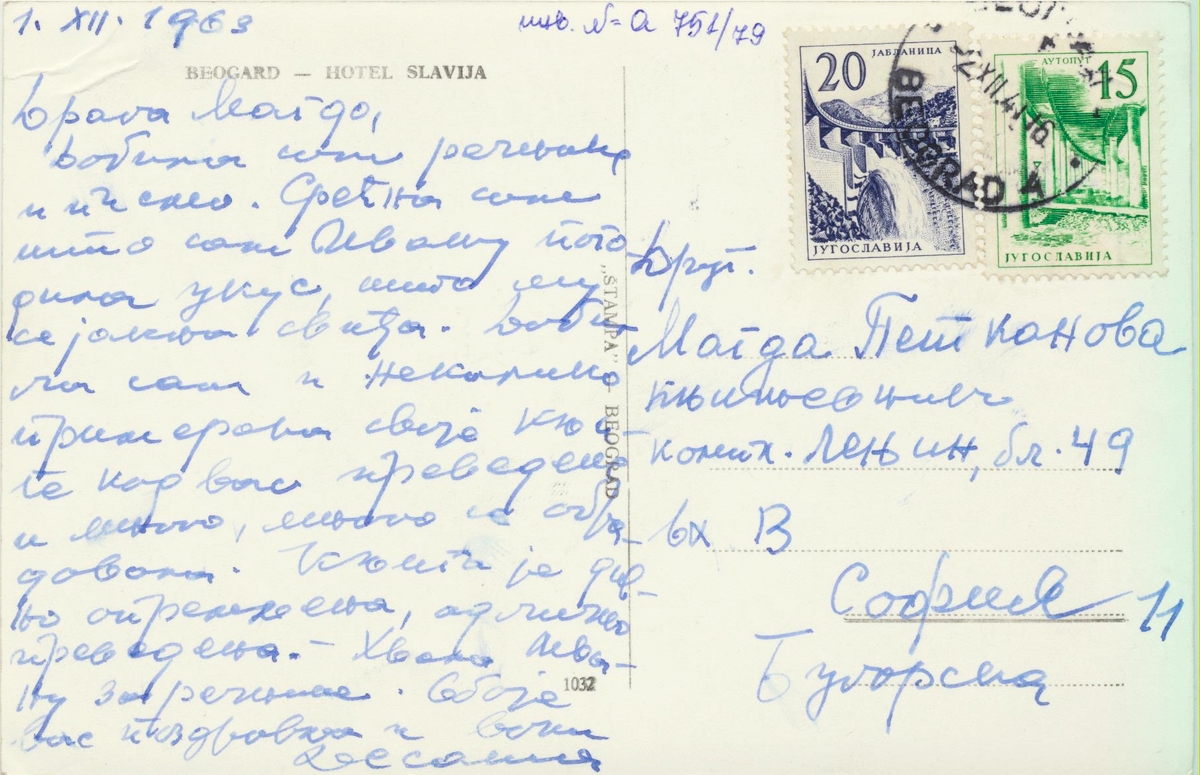 1. XII. 1963
инв. №= а 751/79
BEOGARD — HOTEL SLAVIJA
Драга Магдо,
добила сам речнике
и писмо. Срећна сам
што сам Ивану пого
дила укус, што му
се јакна свиђа. Доби
ла сам и неколико
примерака своје књи-
ге код вас преведене
и много, много се обра-
довала. Књига је див-
но опремљена, одлично
преведена. - Хвала Ива-
ну за речнике. Обоје
вас поздравља и воли
Десанка
„ŠTAMPA" — BEOGRAD
1032
20
ЈАБЛАНИЦА
ЈУГОСЛАВИЈА
АУТОПУТ
15
ЈУГОСЛАВИЈА
BEOGRAD A
Друг.
Магда Петканова
књижевник
компл. Лењин, бл. 49
вх В
Софија 11
Бугарска